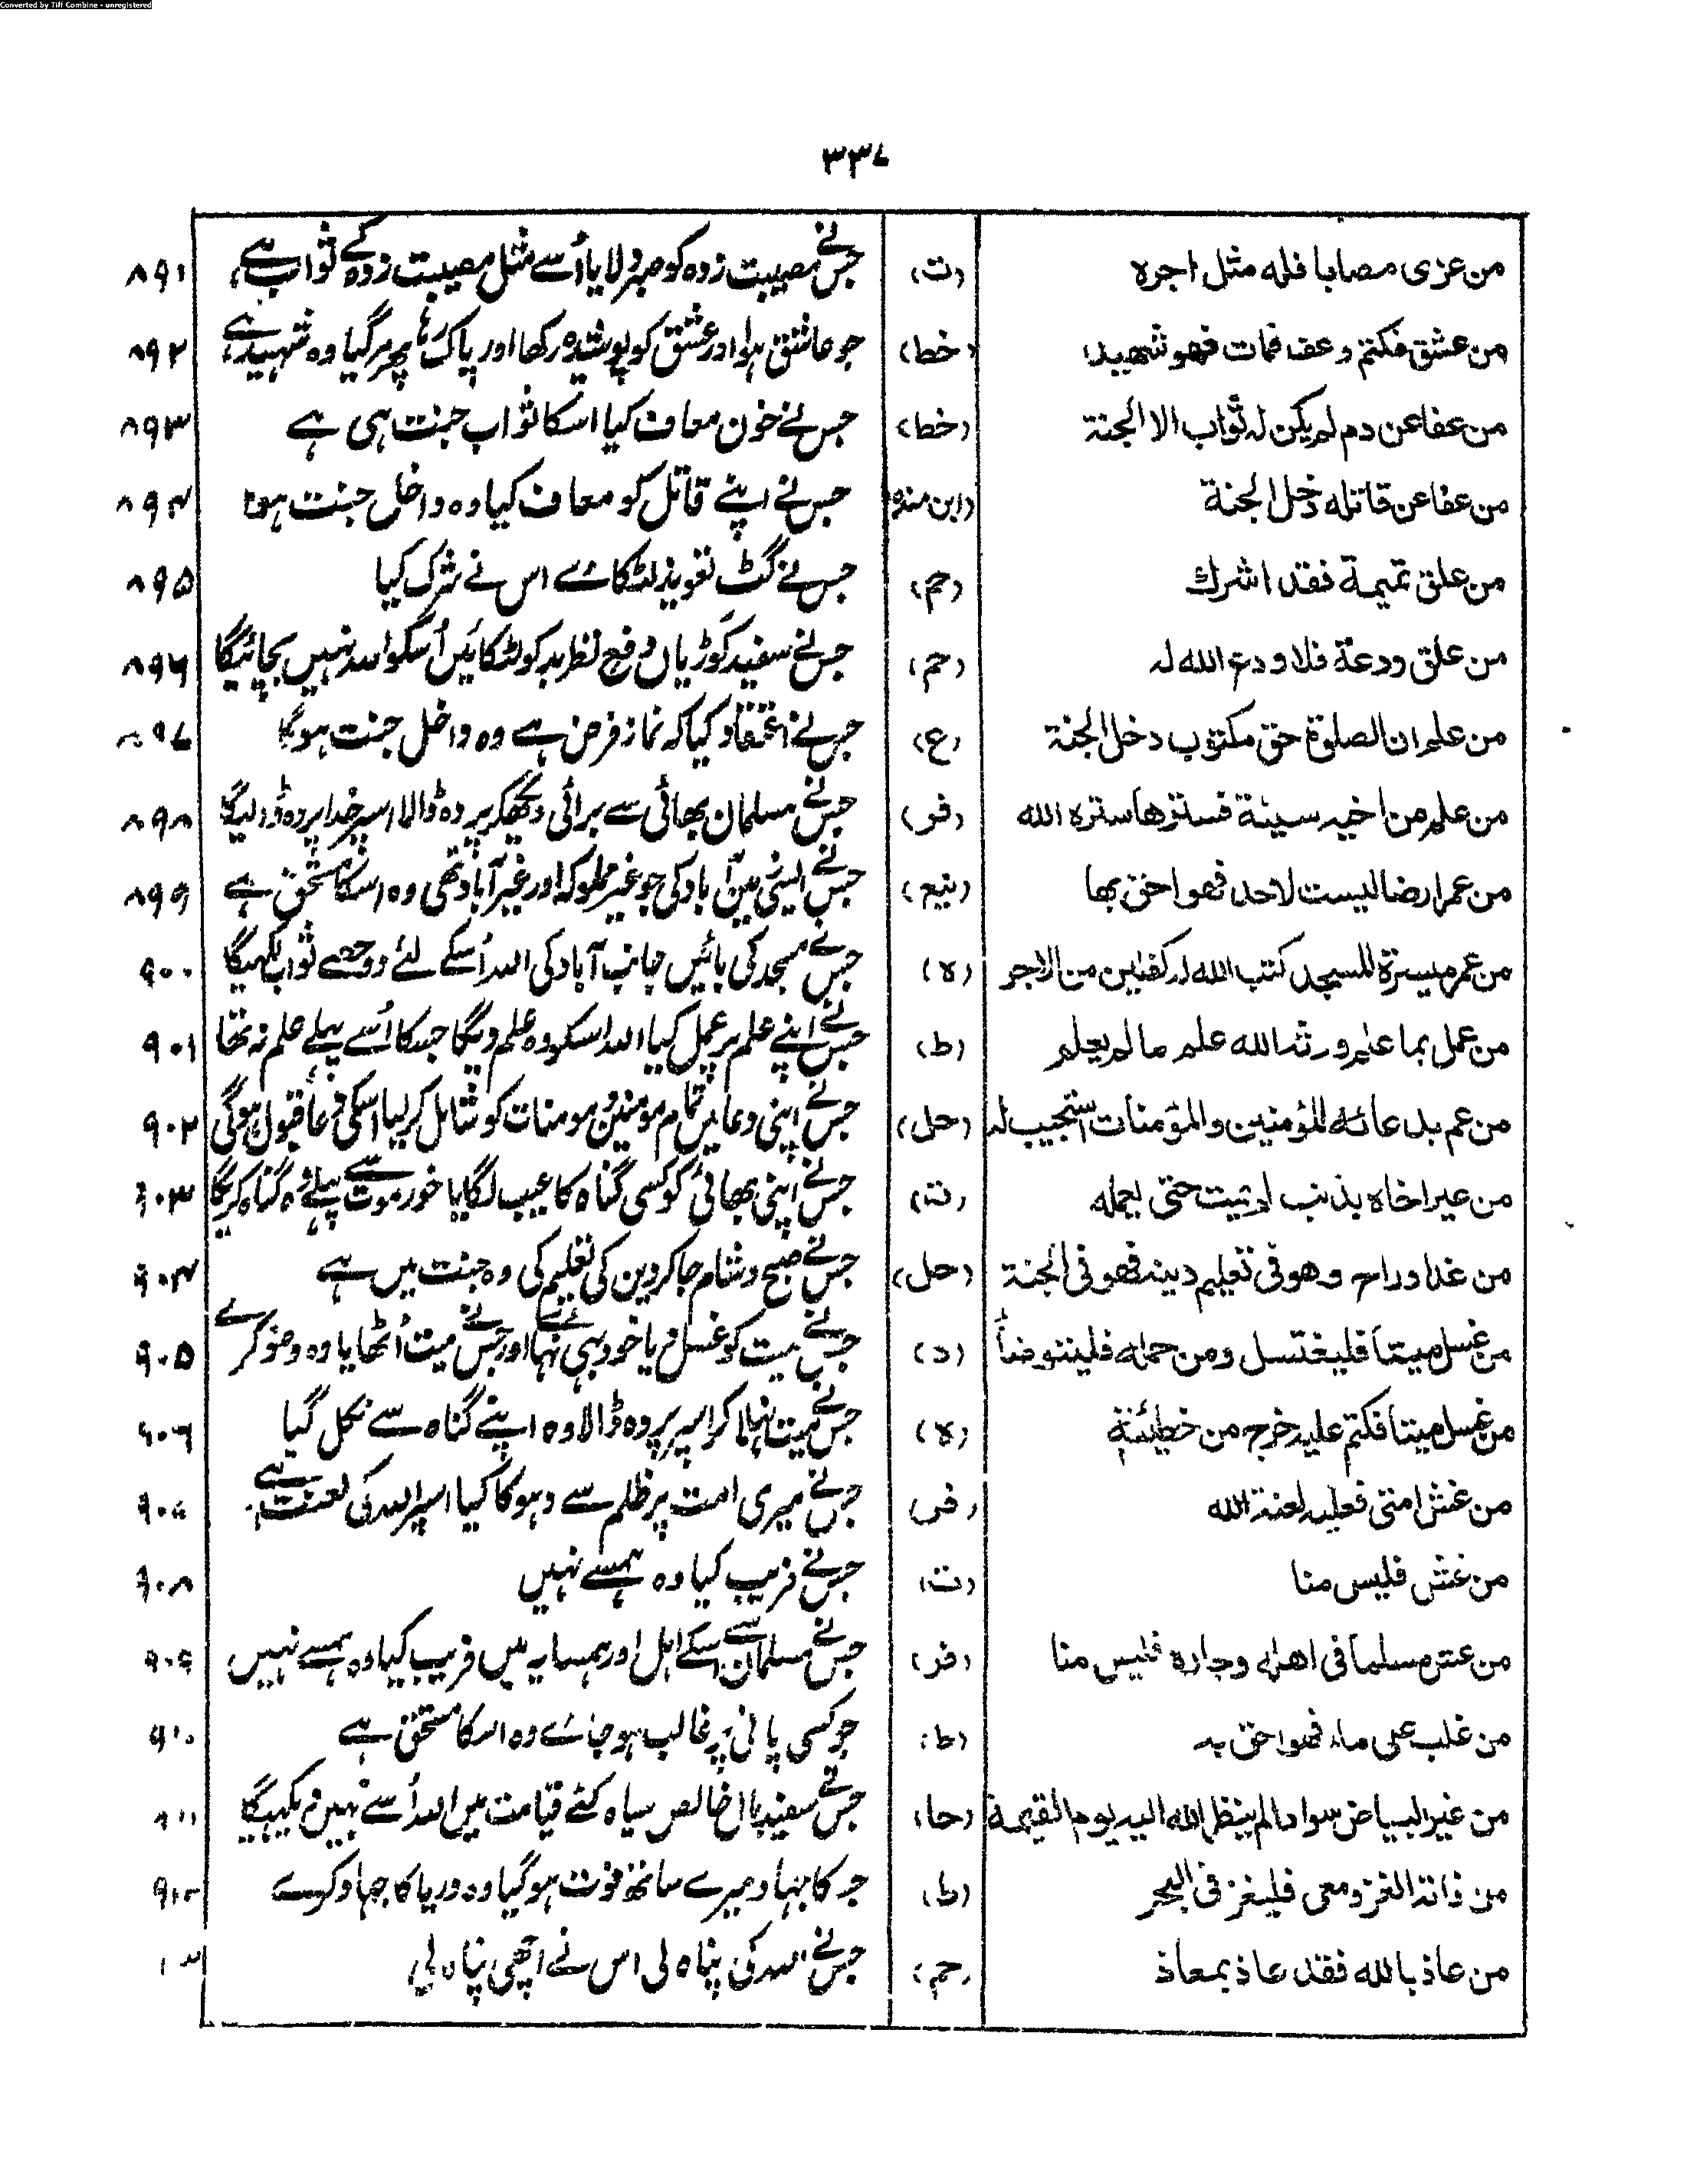 Converted by Tiff Combine - unregistered
۳۳۷
من عزی مصابا فله مثل اجره (ت) جس نے مصیبت زدہ کو صبر دلایا اُسے مثل مصیبت زدہ کے ثواب ہے ۸۹۱
من عشق فکتم وعف فمات فهو شهید (خط) جو عاشق ہوا اور عشق کو پوشیدہ رکھا اور پاک رہا پھر مر گیا وہ شہید ہے ۸۹۲
من عفا عن دم لم یکن له ثواب الا الجنة (خط) جس نے خون معاف کیا اسکا ثواب جنت ہی ہے ۸۹۳
من عفا عن قاتله دخل الجنة (ابن مندہ) جس نے اپنے قاتل کو معاف کیا وہ داخل جنت ہوا ۸۹۴
من علق تمیمة فقد اشرك (حم) جس نے گٹ تعویذ لٹکائے اس نے شرک کیا ۸۹۵
من علق ودعة فلا ودع الله له (حم) جس نے سفید کوڑیاں دفع نظر بد کو لٹکائیں اُسکو اللہ نہیں بچائیگا ۸۹۶
من علم ان الصلوة حق مکتوب دخل الجنة (ع) جس نے اعتقاد کیا کہ نماز فرض ہے وہ داخل جنت ہوگا ۸۹۷
من علم من اخیه سیئة فسترها ستره الله (فر) جس نے مسلمان بھائی سے برائی دیکھکر پردہ ڈالا اسپر خدا پردہ ڈالیگا ۸۹۸
من عمر ارضا لیست لاحد فهو احق بها جس نے ایسی زمین آباد کی جو غیر مملوکہ اور غیر آباد تھی وہ اسکا مستحق ہے ۸۹۹
من عمر میسرة المسجد کتب الله له کفلین من الاجر (ه) جس نے مسجد کی بائیں جانب آباد کی اللہ اُسکے لئے دو حصے ثواب لکھیگا ۹۰۰
من عمل بما علم ورثه الله علم ما لم یعلم (ط) جس نے اپنے علم پر عمل کیا اللہ اسکو وہ علم دیگا جسکا اُسے پہلے علم نہ تھا ۹۰۱
من عم بدعائه للمؤمنین والمؤمنات استجیب له (حل) جس نے اپنی دعا میں تمام مومنین و مومنات کو شامل کر لیا اسکی دعا قبول ہوگی ۹۰۲
من عیر اخاه بذنب لم یمت حتی یعمله (ت) جس نے اپنی بھائی کو کسی گناہ کا عیب لگایا خود موت سے پہلے وہ گناہ کریگا ۹۰۳
من غدا وراح وهو فی تعلیم دینه فهو فی الجنة (حل) جس نے صبح و شام جا کر دین کی تعلیم کی وہ جنت میں ہے ۹۰۴
من غسل میتا فلیغتسل ومن حمله فلیتوضأ (د) جس نے میت کو غسل دیا خود بھی نہائے اور جس نے میت اُٹھایا وہ وضو کرے ۹۰۵
من غسل میتا فکتم علیه خرج من خطیئته (ه) جس نے میت نہلا کر اسپر پردہ ڈالا وہ اپنے گناہ سے نکل گیا ۹۰۶
من غش امتی فعلیه لعنة الله (فر) جس نے میری امت پر ظلم سے دہوکا کیا اسپر اللہ کی لعنت ہے ۹۰۷
من غش فلیس منا (ت) جس نے فریب کیا وہ ہمسے نہیں ۹۰۸
من غش مسلما فی اهله وجاره فلیس منا (فر) جس نے مسلمان سے اسکے اہل اور ہمسایہ میں فریب کیا وہ ہمسے نہیں ۹۰۹
من غلب علی ماء فهو احق به (ط) جو کسی پانی پر غالب ہو جائے وہ اسکا مستحق ہے ۹۱۰
من غیر البیاض سوادا لم ینظر الله الیه یوم القیمة جس نے سفید بال خالص سیاہ کئے قیامت میں اللہ اُسے نہیں دیکھیگا ۹۱۱
من فاته الغزو معی فلیغز فی البحر (ط) جس کا جہاد میرے ساتھ فوت ہوگیا وہ دریا کا جہاد کرے ۹۱۲
من عاذ بالله فقد عاذ بمعاذ (حم) جس نے اللہ کی پناہ لی اس نے اچھی پناہ لی